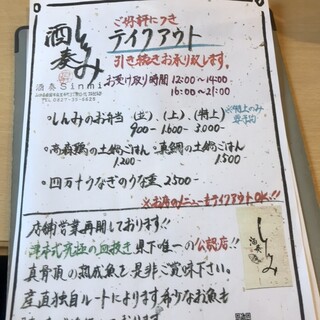 酒奏 しんみ
酒奏 Sinmi
ご好評につき
テイクアウト
引き続きお承り致します。
お受け取り時間 12:00〜14:00
16:00〜21:00
・しんみのお弁当 (並) (上) (特上) ※特上のみ要予約
900- 1600- 3,000-
・高森鶏の土鍋ごはん ・真鯛の土鍋ごはん
1,200 1,500
・四万十うなぎのうな重 2,500-
※お店のメニューもテイクアウトOK!!
店舗営業再開しております!!
津本式究極の血抜き 県下唯一の公認店!!
真骨頂の熟成魚を是非ご賞味下さい。
産直独自ルートによります希少なお魚も
酒奏 しんみ